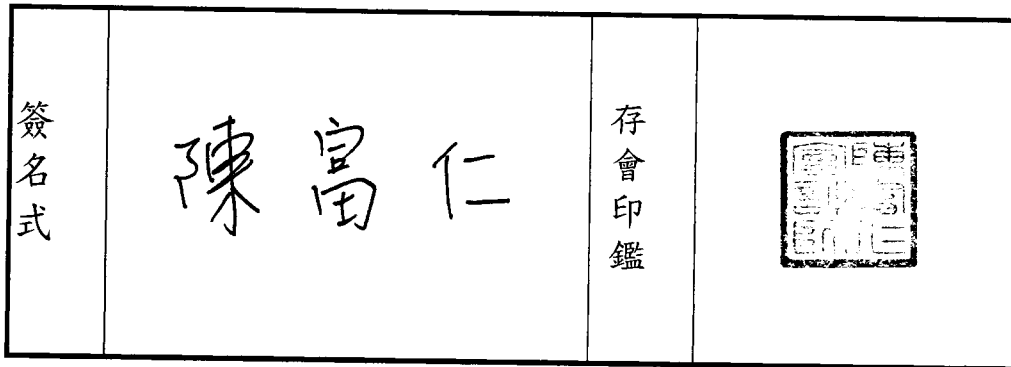 簽名式
陳富仁
存會印鑑